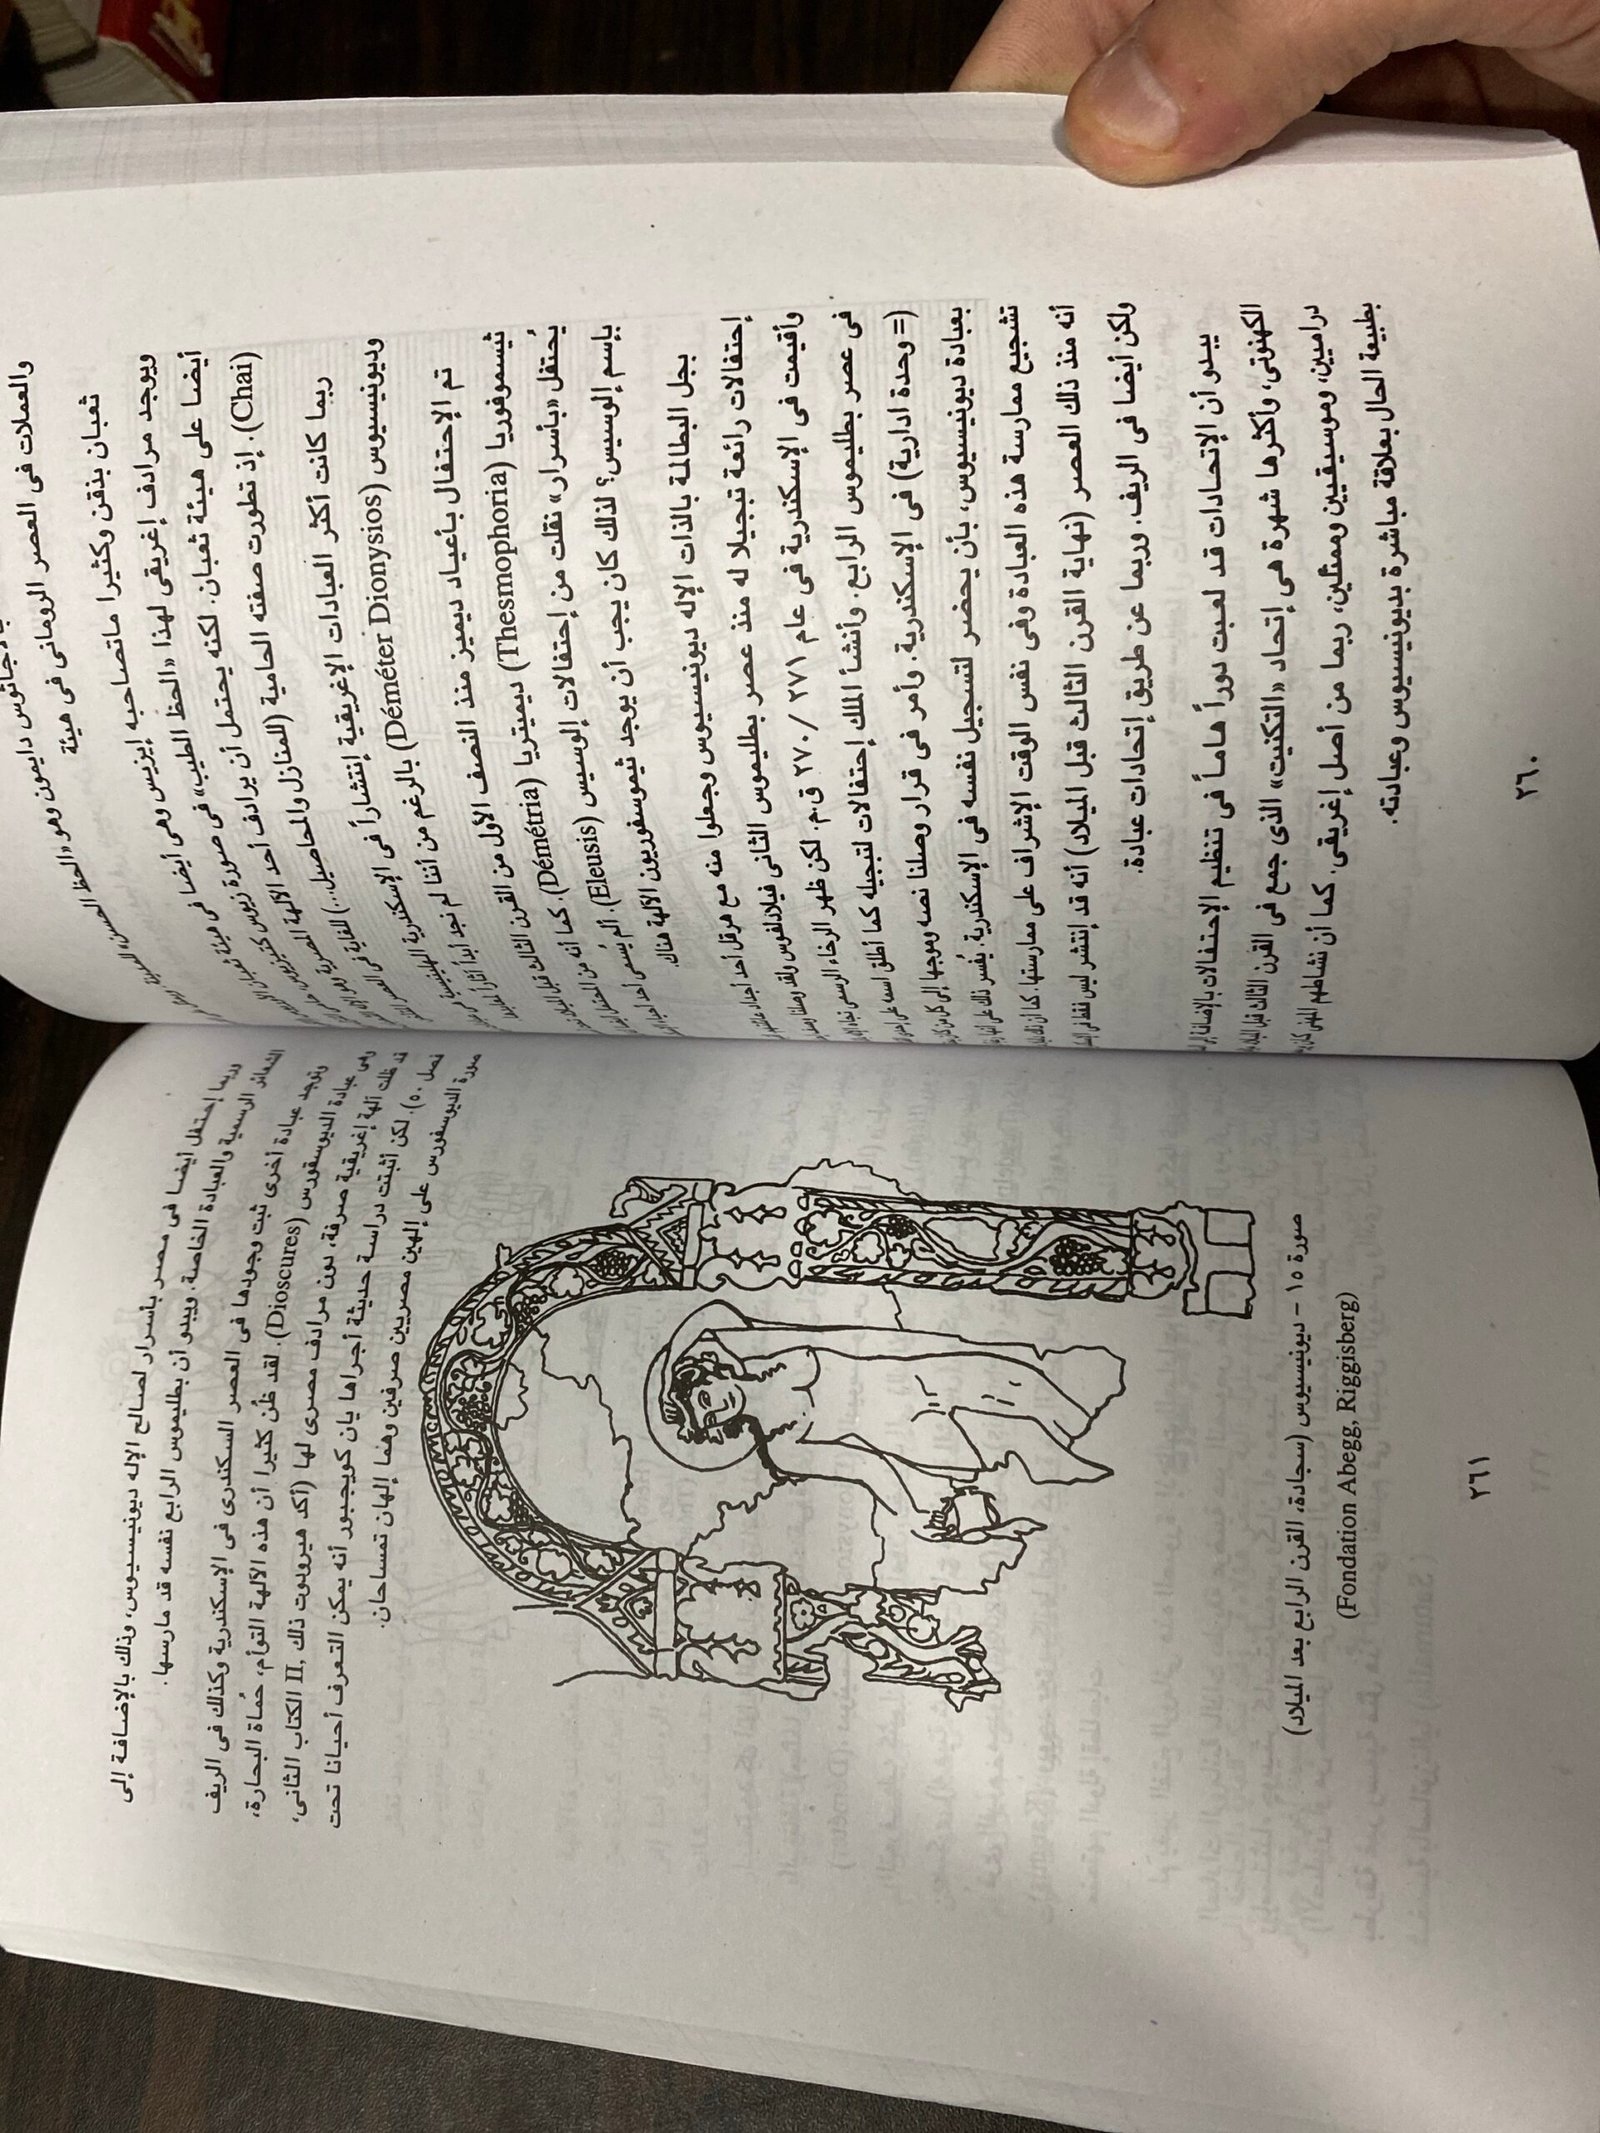 بالأجاثوس دايمون وهو «الحظ الحسن» للمدينة
والعملات فى العصر الرومانى فى هيئة
ثعبان بذقن وكثيرا ماتصاحبه إيزيس وهى أيضا فى هيئة ثعبان
ويوجد مرادف إغريقى لهذا «الحظ الطيب» فى صورة زيوس
أيضا على هيئة ثعبان. لكنه يحتمل أن يرادف أحد الآلهة المصرية
(Chai). إذ تطورت صفته الحامية (للمنازل والمحاصيل...)
ربما كانت أكثر العبادات الإغريقية إنتشاراً فى الإسكندرية الهلينستية
وديونيسيوس (Déméter Dionysios) بالرغم من أننا لم نجد أبداً آثاراً
تم الإحتفال بأعياد ديميز منذ النصف الأول من القرن الثالث قبل
ثيسموفوريا (Thesmophoria) ديميتريا (Démétria). كما أنه من المحتمل
يُحتفل «بأسرار» نقلت من إحتفالات إلوسيس (Eleusis). ألم يُسمى أحد
بإسم إلوسيس؟ لذلك كان يجب أن يوجد ثيموسفوريون الآلهة هناك.
بجل البطالمة بالذات الإله ديونيسيوس وجعلوا منه مع هرقل أحد أجداد
إحتفالات رائعة تبجيلا له منذ عصر بطليموس الثانى فيلادلفوس ولقد وصلنا
وأقيمت فى الإسكندرية فى عام ٢٧١ / ٢٧٠ ق.م. لكن ظهر الرخاء الرسمى
فى عصر بطليموس الرابع. وأنشأ الملك إحتفالات لتبجيله كما أطلق اسمه على
(= وحدة ادارية) فى الإسكندرية. وأمر فى قرار وصلنا نصه وموجها إلى كل من
بعبادة ديونيسيوس، بأن يحضر لتسجيل نفسه فى الإسكندرية. يُفسر ذلك على
تشجيع ممارسة هذه العبادة وفى نفس الوقت الإشراف على ممارستها. كما أن
أنه منذ ذلك العصر (نهاية القرن الثالث قبل الميلاد) أنه قد إنتشر ليس فقط فى
ولكن أيضا فى الريف. وربما عن طريق إتحادات عبادة.
يبدو أن الإتحادات قد لعبت دوراً هاماً فى تنظيم الإحتفالات بالإضافة
الكهنوتى، وأكثرها شهرة هى إتحاد «التكنيت» الذى جمع فى القرن الثالث قبل
دراميين، وموسيقيين وممثلين، ربما من أصل إغريقى. كما أن نشاطهم المهنى كان
بطبيعة الحال بعلاقة مباشرة بديونيسيوس وعبادته.
٢٦٠
وربما إحتفل أيضا فى مصر بأسرار لصالح الإله ديونيسيوس، وذلك بالإضافة إلى
الشعائر الرسمية والعبادة الخاصة. ويبدو أن بطليموس الرابع نفسه قد مارسها.
وتوجد عبادة أخرى ثبت وجودها فى العصر السكندرى فى الإسكندرية وكذلك فى الريف
وهى عبادة الديوسقورس (Dioscures). لقد ظُن كثيرا أن هذه الآلهة التوأم، حُماة البحارة،
قد ظلت آلهة إغريقية صرفة، دون مرادف مصرى لها (أكد هيرودوت ذلك II, الكتاب الثانى،
فصل ٥٠). لكن أثبتت دراسة حديثة أجراها يان كويجبور أنه يمكن التعرف أحيانا تحت
صورة الديوسقورس على إلهين مصريين صرفين وهما إلهان تمساحان.
صورة ١٥ – ديونيسيوس (سجادة، القرن الرابع بعد الميلاد)
(Fondation Abegg, Riggisberg)
٢٦١